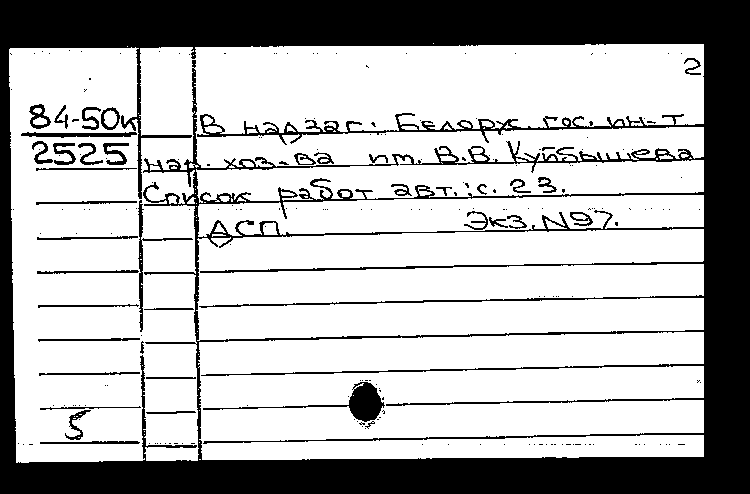 2
84-50к В надзаг. Белорус. гос. ин-т
2525 нар. хоз-ва им. В.В. Куйбышева
Список работ авт.: с. 23.
ДСП. Экз. N97.
5